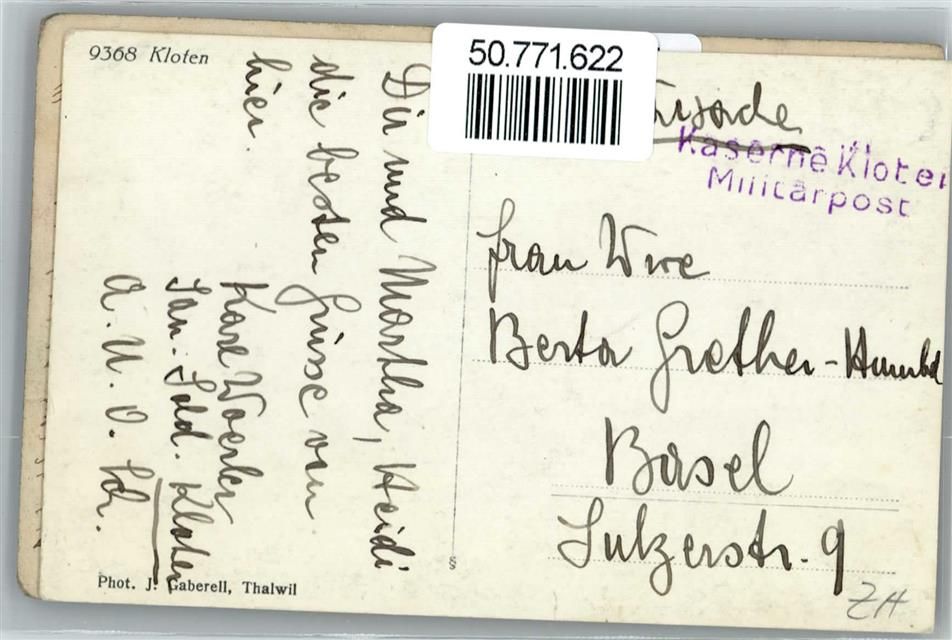 9368 Kloten
50.771.622
Kaserne Kloten
Militärpost
Dir und Martha, Heidi
die besten Grüsse von
hier.
Karl
San. Sdt. Kloten
A. U. O. Sch.
Frau Wwe
Berta Grether-
Basel
Sulzerstr. 9
Phot. J. Gaberell, Thalwil
§
ZH